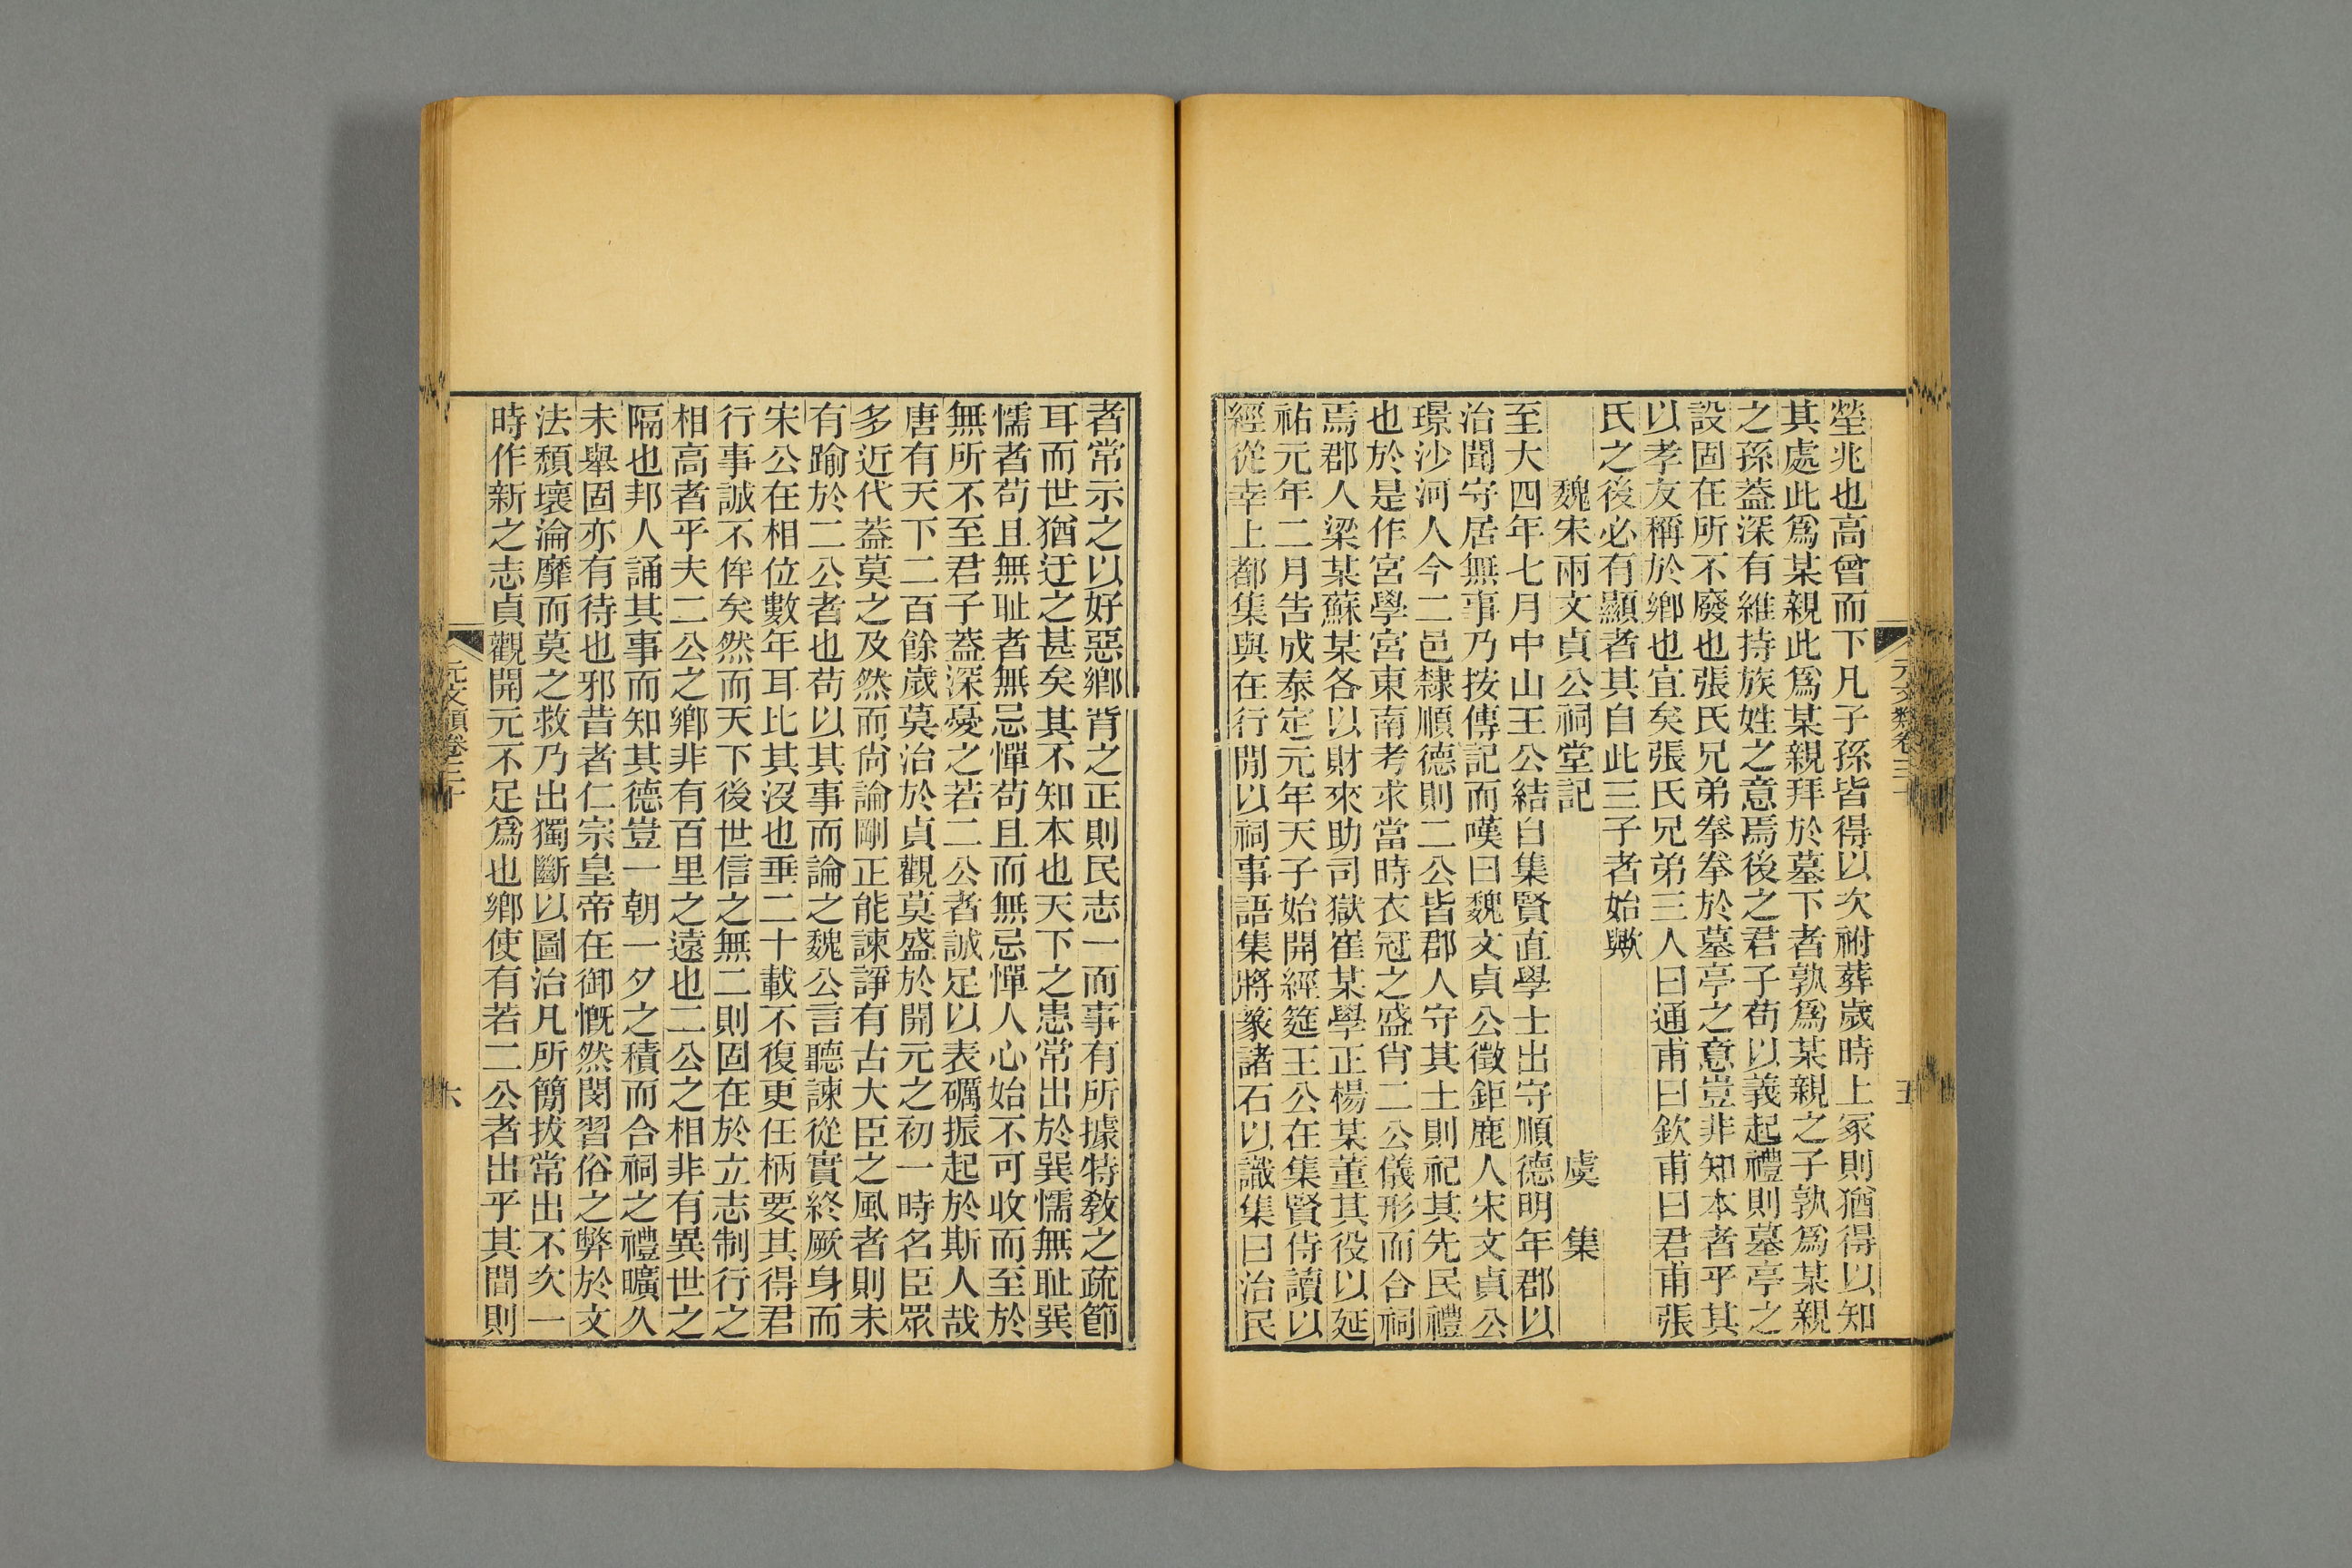 元文類卷三十
五
塋兆也高曾而下凡子孫皆得以次祔葬歲時上冢則猶得以知
其處此爲某親此爲某親拜於墓下者孰爲某親之子孰爲某親
之孫葢深有維持族姓之意焉後之君子苟以義起禮則墓亭之
設固在所不廢也張氏兄弟拳拳於墓亭之意豈非知本者乎其
以孝友稱於鄉也宜矣張氏兄弟三人曰通甫曰欽甫曰君甫張
氏之後必有顯者其自此三子者始歟
魏宋兩文貞公祠堂記 虞集
至大四年七月中山王公結自集賢直學士出守順德明年郡以
治聞守居無事乃按傳記而嘆曰魏文貞公徵鉅鹿人宋文貞公
璟沙河人今二邑隸順德則二公皆郡人守其土則祀其先民禮
也於是作宮學宮東南考求當時衣冠之盛肖二公儀形而合祠
焉郡人梁某蘇某各以財來助司獄崔某學正楊某董其役以延
祐元年二月告成泰定元年天子始開經筵王公在集賢侍讀以
經從幸上都集與在行閒以祠事語集將篆諸石以識集曰治民
者常示之以好惡鄉背之正則民志一而事有所據特敎之疏節
耳而世猶迂之甚矣其不知本也天下之患常出於巽懦無耻巽
懦者苟且無耻者無忌憚苟且而無忌憚人心始不可收而至於
無所不至君子葢深憂之若二公者誠足以表礪振起於斯人哉
唐有天下二百餘歲莫治於貞觀莫盛於開元之初一時名臣眾
多近代葢莫之及然而尙論剛正能諫諍有古大臣之風者則未
有踰於二公者也苟以其事而論之魏公言聽諫從實終厥身而
宋公在相位數年耳比其沒也垂二十載不復更任柄要其得君
行事誠不侔矣然而天下後世信之無二則固在於立志制行之
相高者乎夫二公之鄉非有百里之遠也二公之相非有異世之
隔也邦人誦其事而知其德豈一朝一夕之積而合祠之禮曠久
未舉固亦有待也邪昔者仁宗皇帝在御慨然閔習俗之弊於文
法頹壞淪靡而莫之救乃出獨斷以圖治凡所簡拔常出不次一
時作新之志貞觀開元不足爲也鄉使有若二公者出乎其間則
元文類卷三十
六